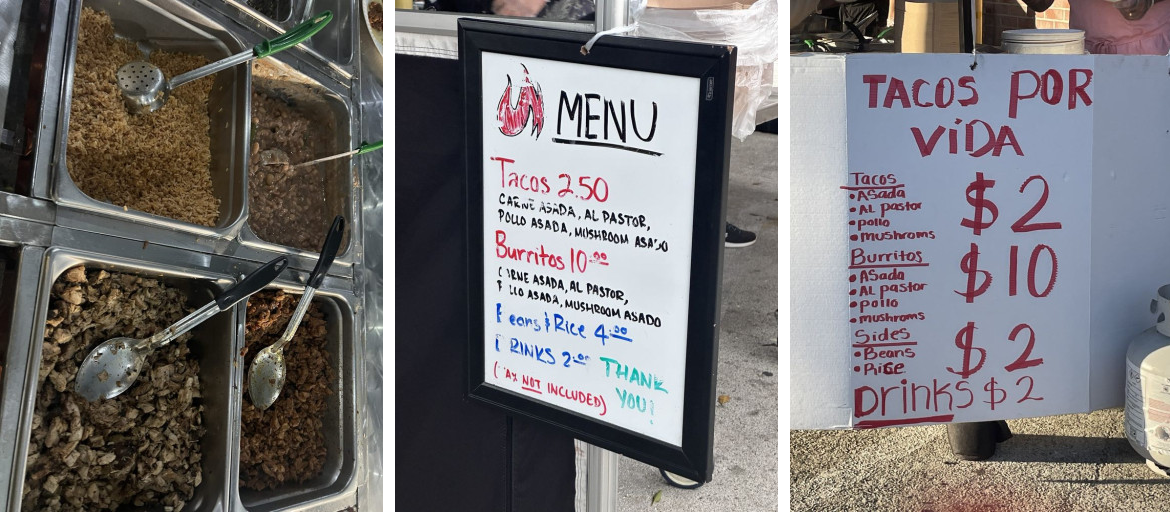 MENU
Tacos 2.50
CARNE ASADA, AL PASTOR,
POLLO ASADA, MUSHROOM ASADO
Burritos 10.00
CARNE ASADA, AL PASTOR,
P LLO ASADA, MUSHROOM ASADO
eans & Rice 4.00
RINKS 2.00
THANK
YOU!
( AX NOT INCLUDED)
TACOS POR
VIDA
Tacos
• ASada
• Al pastor
• pollo
• mushroms
$2
Burritos
• ASada
• Al pastor
• pollo
• mushroms
$10
Sides
• Beans
• Rice
$2
Drinks $2